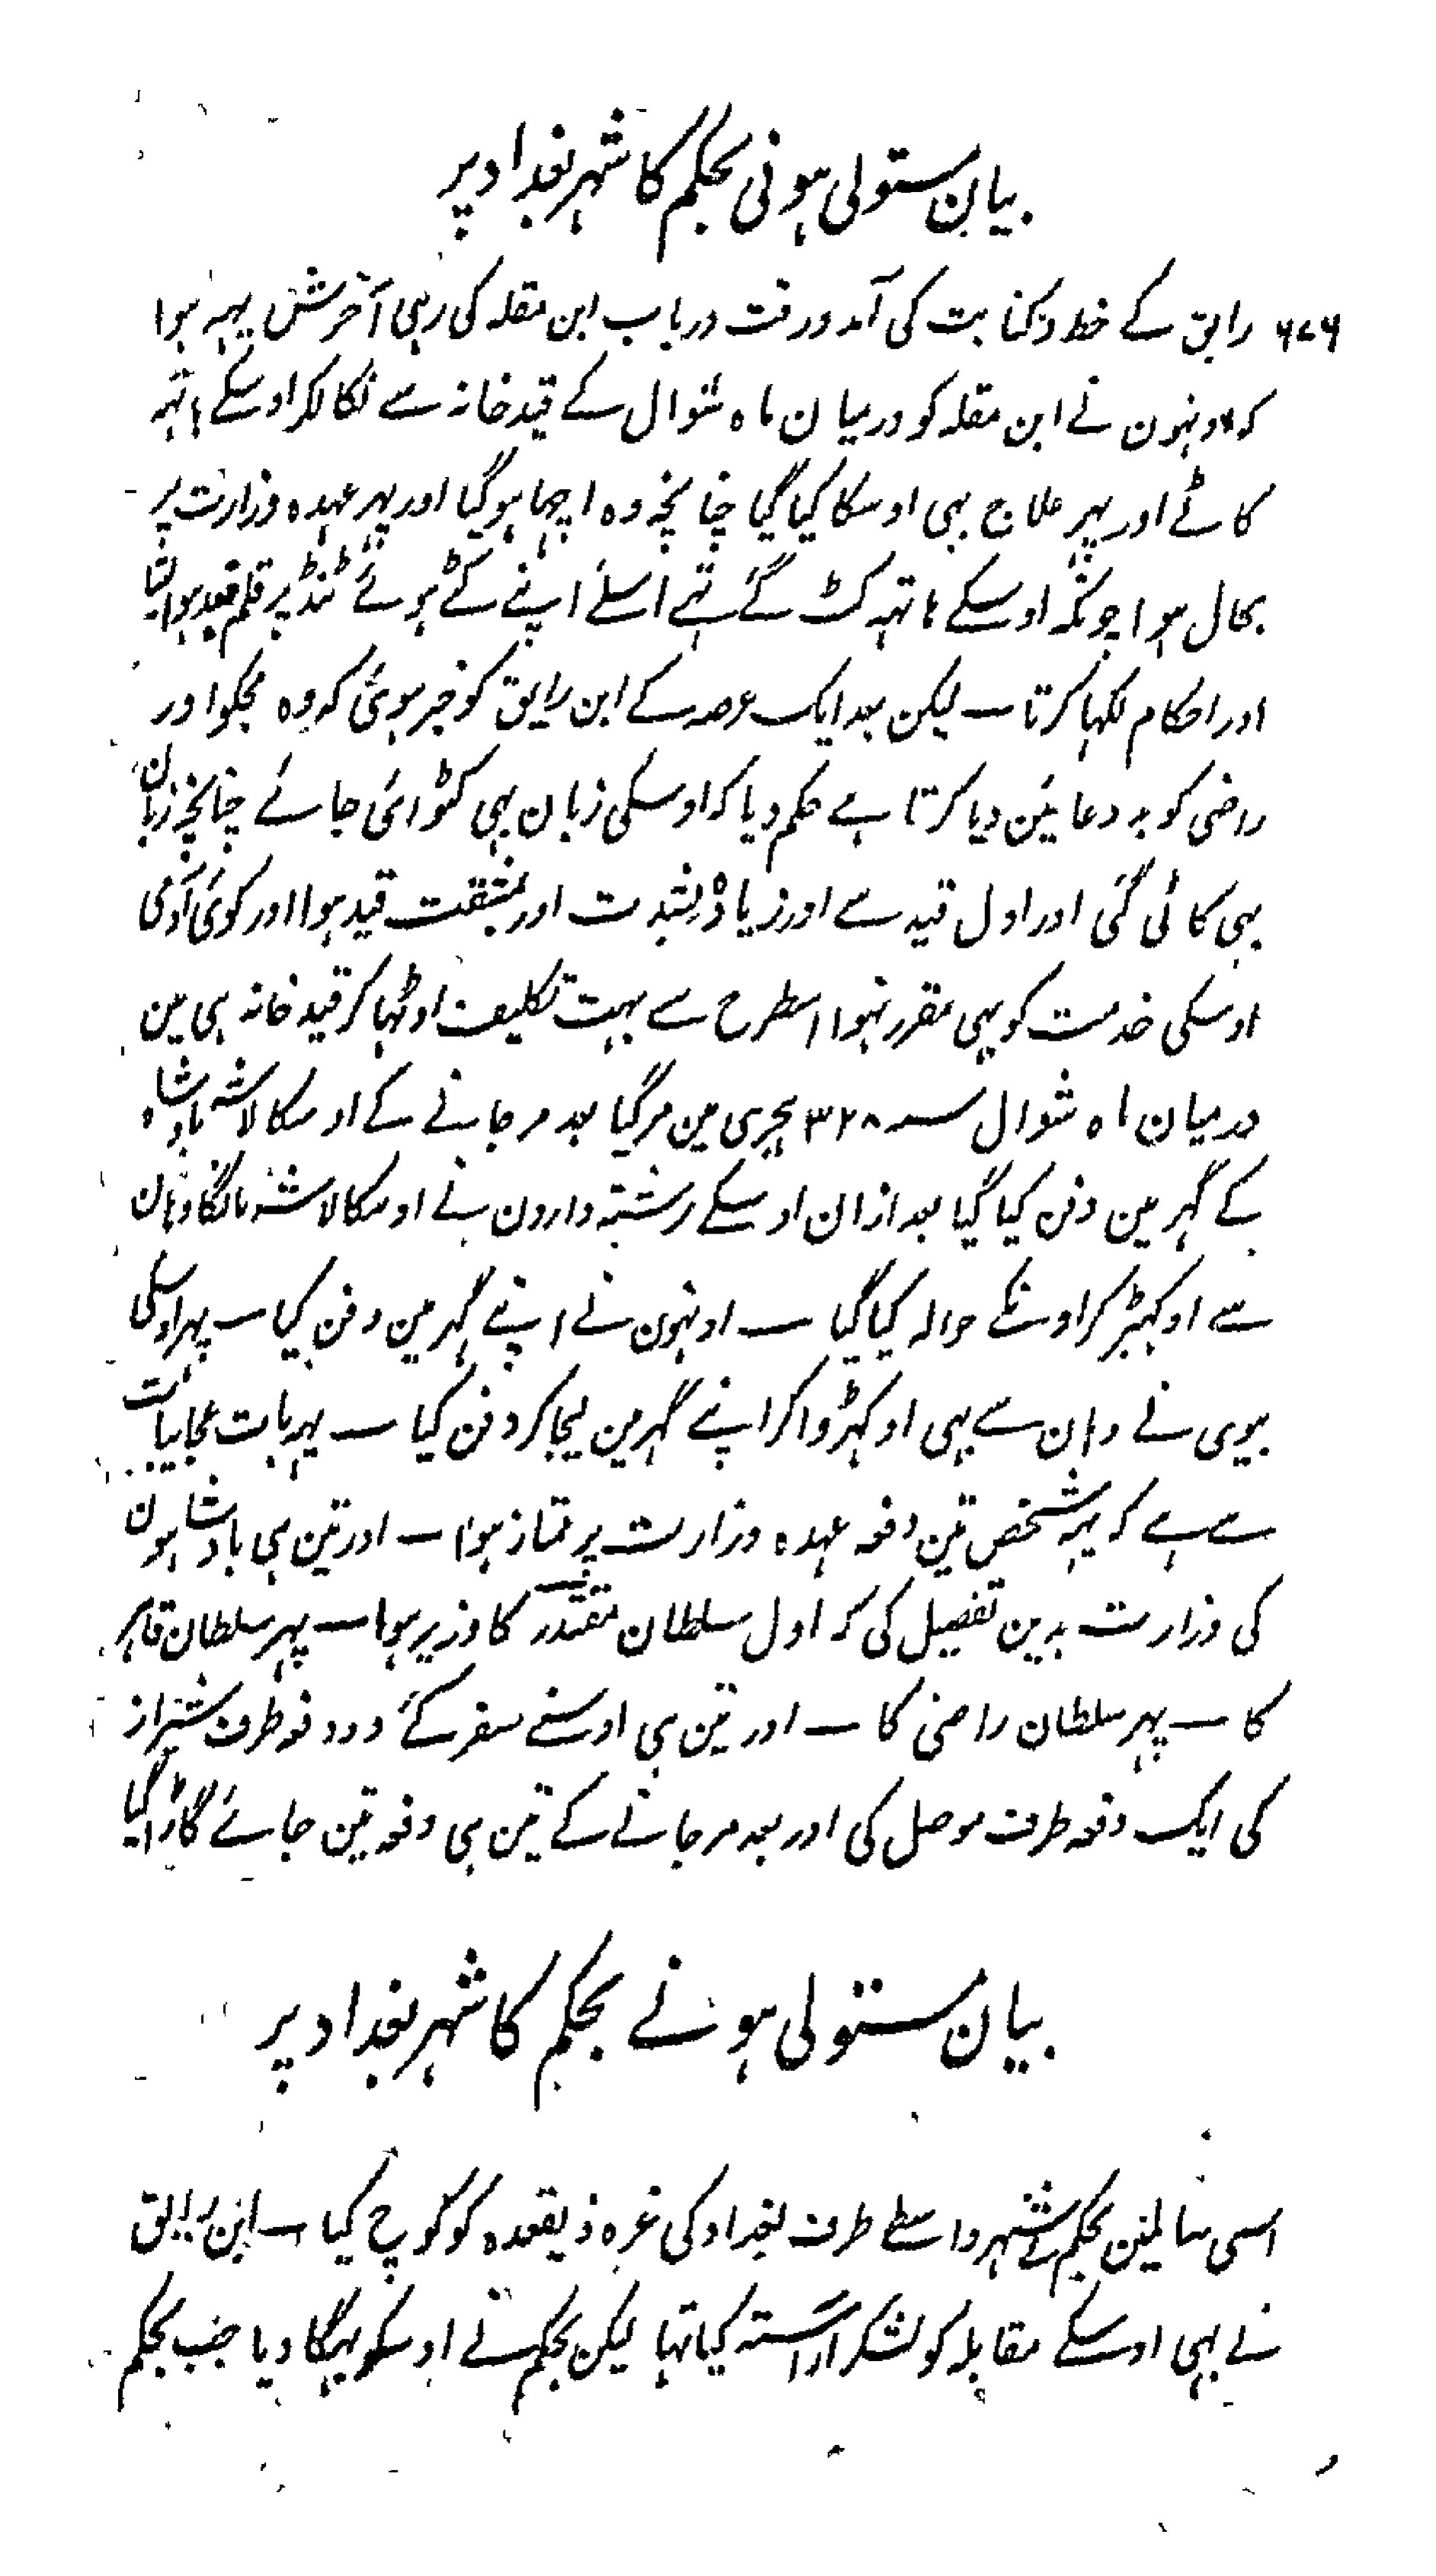 بیان مستولی ہونی بجکم کا شہر بغداد پر
۶۷۶ رایق کے خط و کتابت کی آمد و رفت درباب ابن مقلہ کی رہی آخرش یہہ ہوا
کہ اونہون نے ابن مقلہ کو درمیان ماہ شوال کے قید خانہ سے نکالکر اوسکے ہاتہہ
کاٹے اور پہر علاج بہی اوسکا کیا گیا چنانچہ وہ اچہا ہو گیا اور پہر عہدہ وزارت پر
بحال ہوا چونکہ اوسکے ہاتہہ کٹ گئے تہے اسلئے اپنے کٹے ہوئے ٹنڈ پر قلم بندہوا لیتا
اور احکام لکہا کرتا ۔ لیکن بعد ایک عرصہ کے ابن رایق کو خبر ہوئی کہ وہ مجکو اور
راضی کو بد دعائین دیا کرتا ہے حکم دیا کہ اوسکی زبان بہی کٹوائی جائے چنانچہ زبان
بہی کاٹی گئی اور اول قید سے اور زیادہ بشدت اور بمشقت قید ہوا اور کوئی آدمی
اوسکی خدمت کو بہی مقرر نہوا اسطرح سے بہت تکلیف اوٹہا کر قید خانہ ہی مین
درمیان ماہ شوال سنہ ۳۲۸ ہجری مین مر گیا بعد مر جانے کے اوسکا لاشہ بادشاہ
کے گہر مین دفن کیا گیا بعد ازان اوسکے رشتہ دارون نے اوسکا لاشہ مانگا وہان
سے اوکہیڑ کر اونکے حوالہ کیا گیا ۔ اونہون نے اپنے گہر مین دفن کیا ۔ پہر اوسکی
بیوی نے وہان سے بہی اوکہڑوا کر اپنے گہر مین لیجا کر دفن کیا ۔ یہہ بات عجایبات
سے ہے کہ یہہ شخص تین دفعہ عہدہ وزارت پر ممتاز ہوا ۔ اور تین ہی بادشاہون
کی وزارت بدین تفصیل کی کہ اول سلطان مقتدر کا وزیر ہوا ۔ پہر سلطان قاہر
کا ۔ پہر سلطان راضی کا ۔ اور تین ہی اوسنے سفر کئے دو دفعہ طرف شیراز
کی ایک دفعہ طرف موصل کی اور بعد مر جانے کے تین ہی دفعہ تین جائے گاڑا گیا
بیان مستولی ہونے بجکم کا شہر بغداد پر
اسی سالمین بجکم نے شہر واسط سے طرف بغداد کی غرہ ذیقعدہ کو کوچ کیا ۔ ابن رایق
نے بہی اوسکے مقابلہ کو لشکر آراستہ کیا تہا لیکن بجکم نے اوسکو بہگا دیا جب بجکم